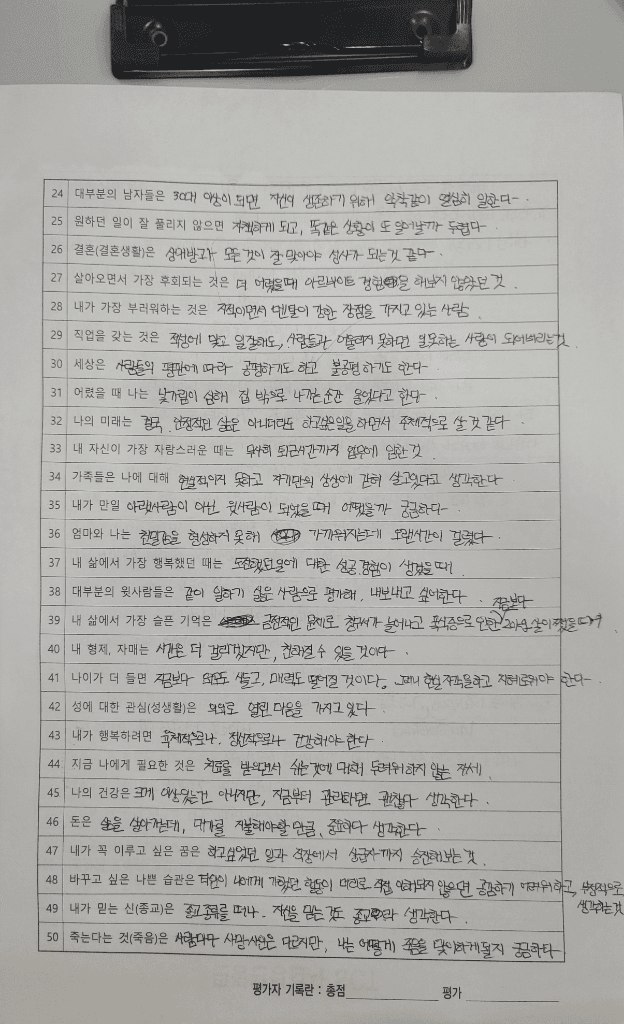 24 대부분의 남자들은 30대 이상이 되면 자신이 생존하기 위해 악착같이 열심히 일한다.
25 원하던 일이 잘 풀리지 않으면 자책하게 되고, 똑같은 상황이 또 일어날까 두렵다.
26 결혼(결혼생활)은 상대방과 모든것이 잘 맞아야 성사가 되는것 같다.
27 살아오면서 가장 후회되는 것은 더 어렸을때 아르바이트 경험을 해보지 않았던 것.
28 내가 가장 부러워하는 것은 지적이면서 멘탈이 강한 장점을 가지고 있는 사람.
29 직업을 갖는 것은 적성에 맞고 일잘해도, 사람들과 어울리지 못하면 일못하는 사람이 되어버리는것.
30 세상은 사람들의 평판에 따라 공평하기도 하고 불공평하기도 한다.
31 어렸을 때 나는 낯가림이 심해 집 밖으로 나가는순간 울었다고 한다.
32 나의 미래는 결국, 안정적인 삶은 아니더라도 하고싶은일을 하면서 주체적으로 살것 같다.
33 내 자신이 가장 자랑스러운 때는 무사히 퇴근시간까지 업무에 임한것.
34 가족들은 나에 대해 현실적이지 못하고 자기만의 상상에 갇혀 살고있다고 생각한다.
35 내가 만일 아랫사람이 아닌 윗사람이 되었을때 어땠을까 궁금하다.
36 엄마와 나는 형성하지 못해 가까워지는데 오랜시간이 걸렸다.
37 내 삶에서 가장 행복했던 때는 도전했던일에 대한 성공경험이 생겼을때.
38 대부분의 윗사람들은 같이 일하기 싫은 사람으로 평가해, 내보내고 싶어한다.
39 내 삶에서 가장 슬픈 기억은 금전적인 문제로 늘어나고 폭식증으로 인한 지금보다 살이 쪘을때
40 내 형제, 자매는 시간은 더 걸리겠지만, 친해질 수 있을 것이다.
41 나이가 더 들면 지금보다 외모도 삭을고, 매력도 떨어질 것이다. 그러니 현실자각을하고 지혜로워야 한다.
42 성에 대한 관심(성생활)은 의외로 열린 마음을 가지고 있다.
43 내가 행복하려면 육체적으로나. 정신적으로나 건강해야 한다.
44 지금 나에게 필요한 것은 치료를 받으면서 쉬는것에 대해 두려워하지 않는 자세.
45 나의 건강은 크게 이상있는건 아니지만, 지금부터 관리하면 괜찮다 생각한다.
46 돈은 삶을 살아가는데, 대가를 지불해야할 만큼, 중요하다 생각한다.
47 내가 꼭 이루고 싶은 꿈은 하고싶었던 일과 직장에서 상급자까지 승진해보는것.
48 바꾸고 싶은 나쁜 습관은 타인이 나에게 가했던 행동이 머리로 직접 이해되지 않으면 공감하기 어려워하고, 부정적으로
생각하는것
49 내가 믿는 신(종교)은 종교종류를 떠나. 자신을 믿는것도 종교라 생각한다.
50 죽는다는 것(죽음)은 사람마다 사망사인은 다르지만, 나는 어떻게 죽음을 맞이하게될지 궁금하다
평가자 기록란 : 총점 평가